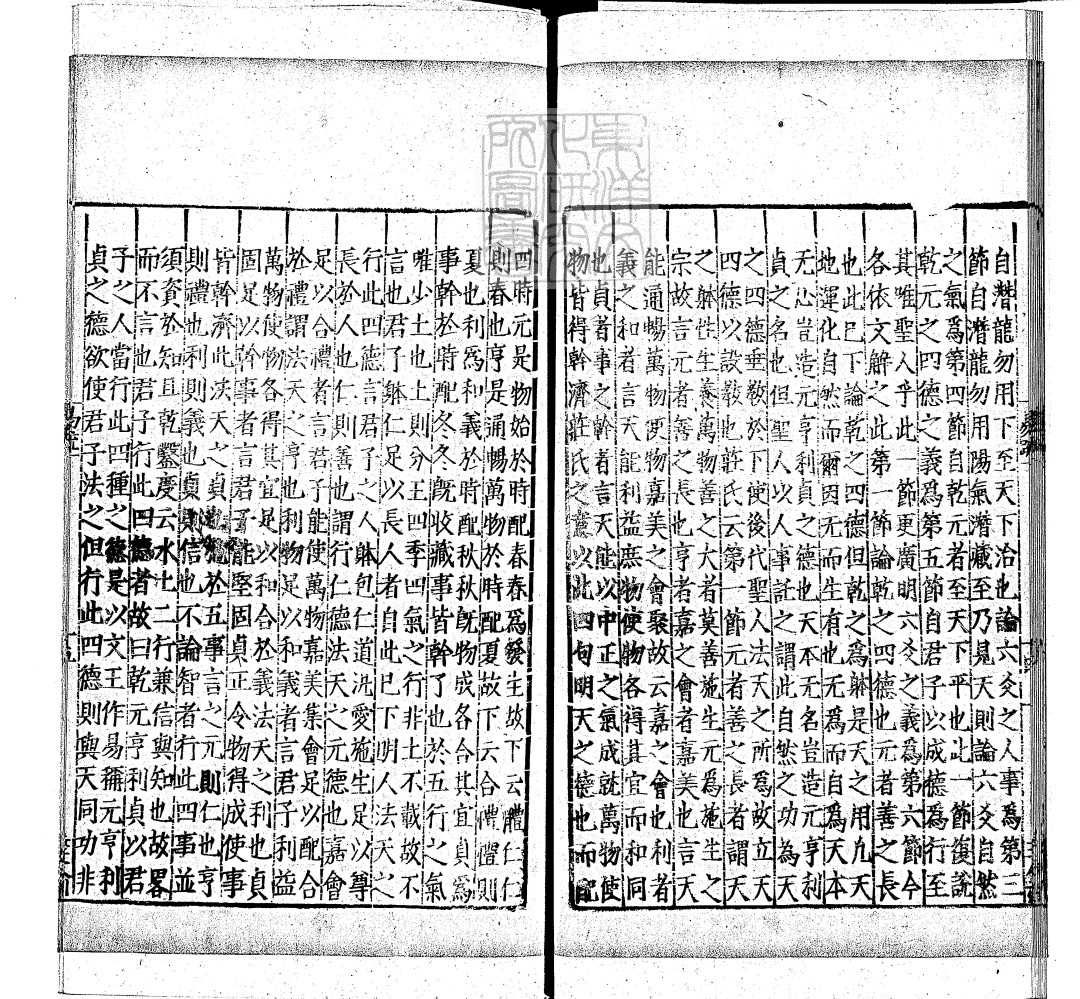 自潛龍勿用下至天下治也論六爻之人事爲第三
節自潛龍勿用陽氣潛藏至乃見天則論六爻自然
之氣爲第四節自乾元者至天下平也此一節復說
乾元之四德之義爲第五節自君子以成德爲行至
其唯聖人乎此一節更廣明六爻之義爲第六節今
各依文解之此第一節論乾之四德也元者善之長
也此已下論乾之四德但乾之爲躰是天之用凡天
地運化自然而爾因无而生有也无爲而自爲天本
无心豈造元亨利貞之德也天本无名豈造元亨利
貞之名也但聖人以人事託之謂此自然之功爲天
之四德垂敎於下使後代聖人法天之所爲故立天
四德以設敎也莊氏云第一節元者善之長者謂天
之躰性生養萬物善之大者莫善施生元爲施生之
宗故言元者善之長也亨者嘉之會者嘉美也言天
能通暢萬物使物嘉美之會聚故云嘉之會也利者
義之和者言天能利益庶物使物各得其宜而和同
也貞者事之幹者言天能以中正之氣成就萬物使
物皆得幹濟莊氏之意以此四句明天之德也而配
四時元是物始於時配春春爲發生故下云體仁仁
則春也亨是通暢萬物於時配夏故下云合禮禮則
夏也利爲和義於時配秋秋旣物成各合其宜貞爲
事幹於時配冬冬旣收藏事皆幹了也於五行之氣
唯少土也土則分王四季四氣之行非土不載故不
言也君子躰仁足以長人者自此已下明人法天之
行此四德言君子之人躰包仁道汎愛施生足以尊
長扵人也仁則善也謂行仁德法天之元德也嘉會
足以合禮者言君子能使萬物嘉美集會足以配合
扵禮謂法天之亨也利物足以和義者言君子利益
萬物使物各得其宜足以和合扵義法天之利也貞
固足以幹事者言君子能堅固貞正令物得成使事
皆幹濟此法天之貞也施扵五事言之元則仁也亨
則禮也利則義也貞則信也不論智者行此四事並
須資扵知且乾鑿度云水土二行兼信與知也故畧
而不言也君子行此四德者故曰乾元亨利貞以君
子之人當行此四種之德是以文王作易稱元亨利
貞之德欲使君子法之但行此四德則與天同功非